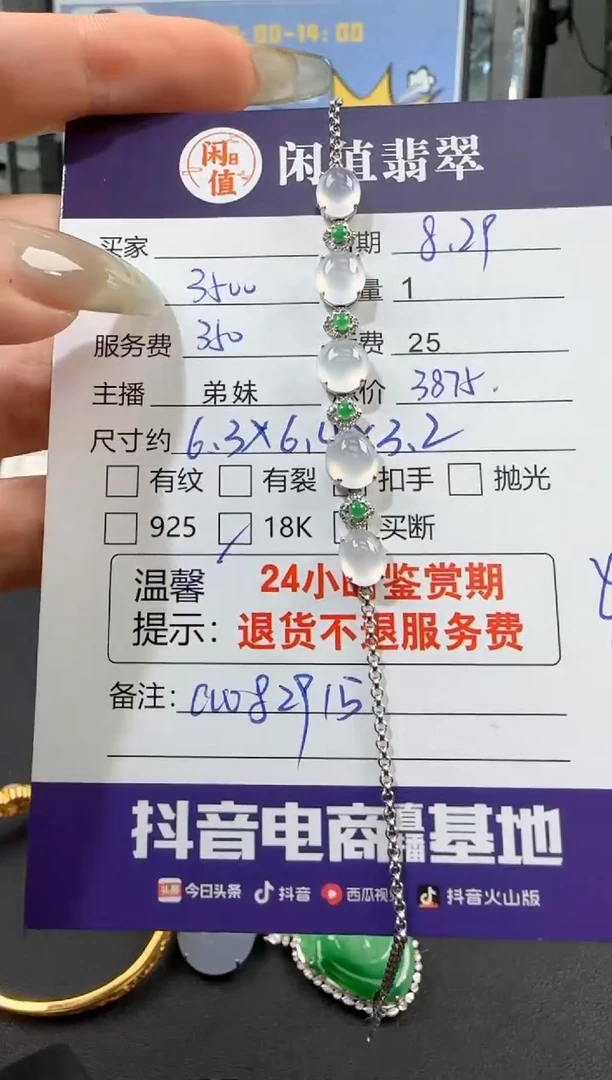 00-14:00
闲值
闲值翡翠
买家 期 8.29
3500 量 1
服务费 350 费 25
主播 弟妹 价 3875.
尺寸约 6.3X6. X3.2
有纹 有裂 扣手 抛光
925 18K 买断
温馨 24小时鉴赏期
提示: 退货不退服务费
备注: 082915
抖音电商直播基地
头条 今日头条 抖音 西瓜视频 抖音火山版